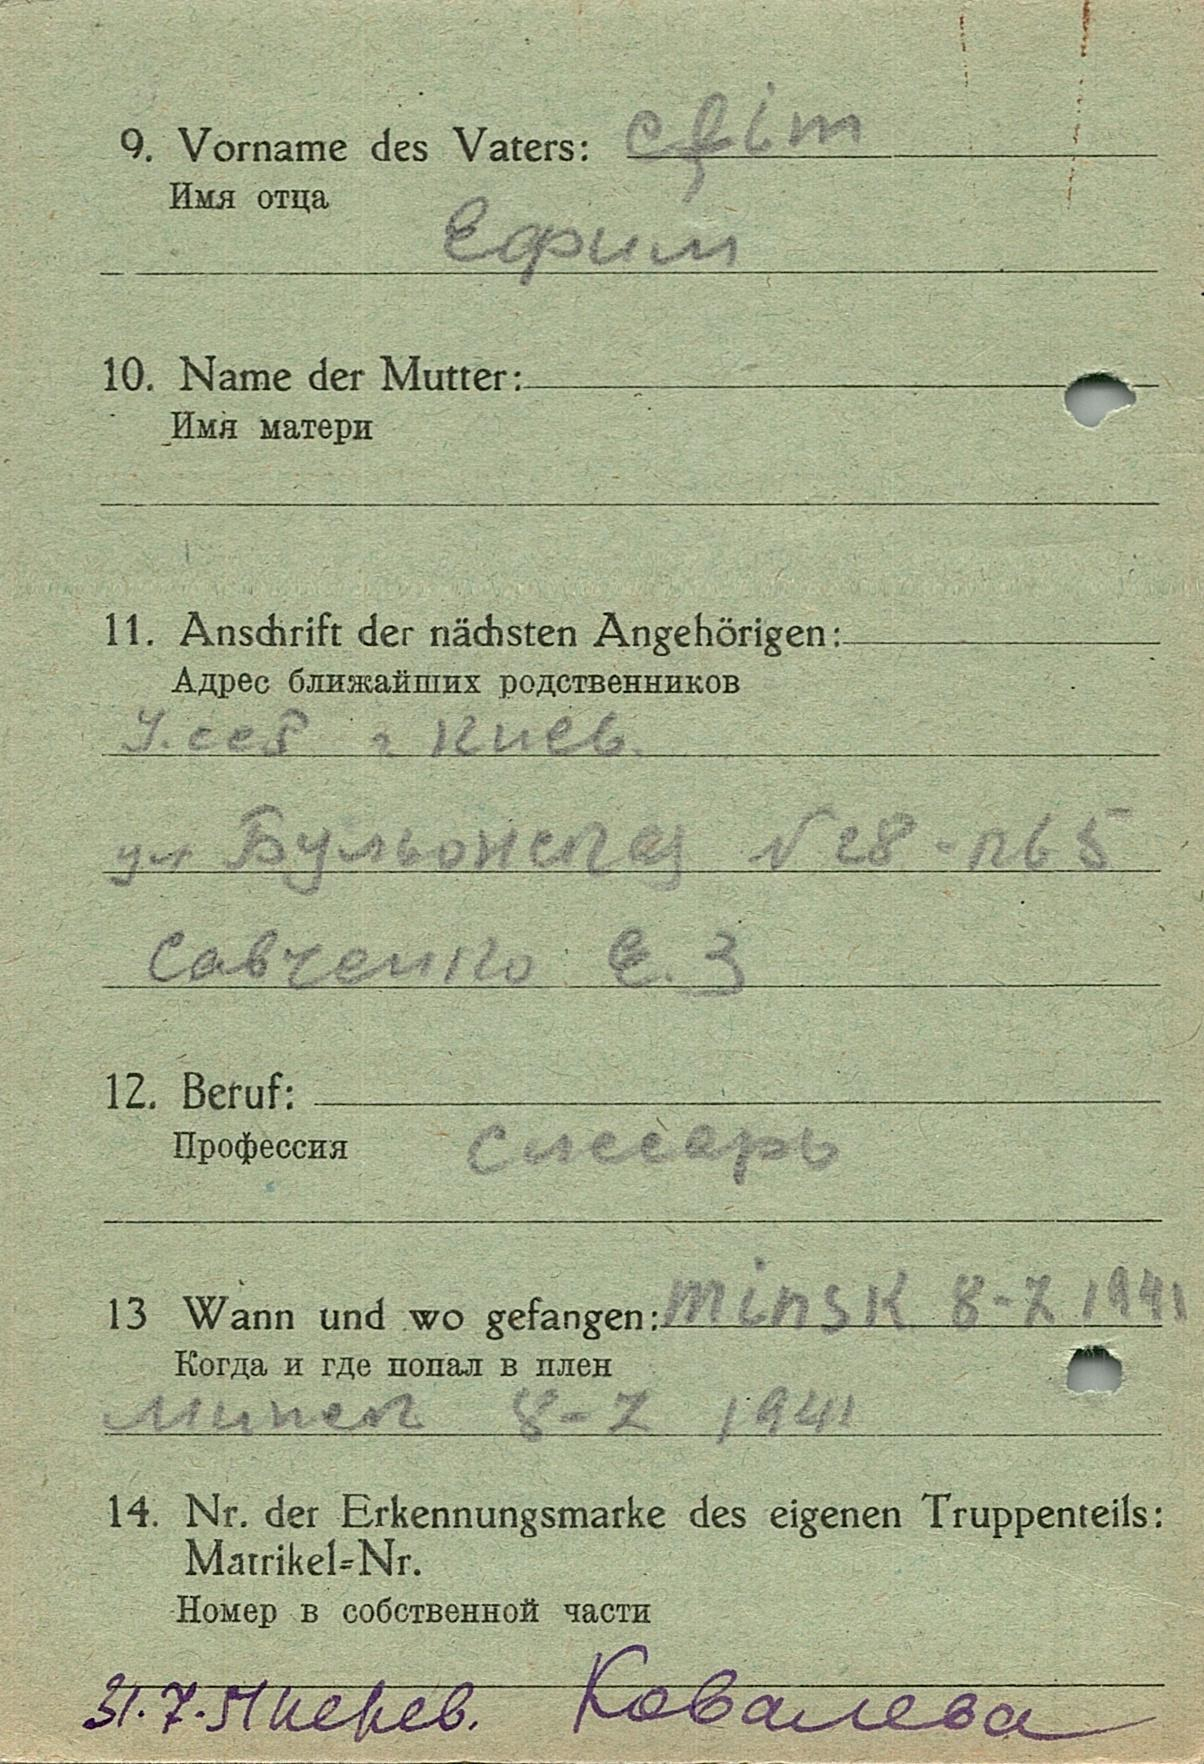 9. Vorname des Vaters: efim
Имя отца
Ефим
10. Name der Mutter:
Имя матери
11. Anschrift der nächsten Angehörigen:
Адрес ближайших родственников
г Киев.
ул Бульонская N 28 - 5
Савченко Е. З
12. Beruf:
Профессия
Слесарь
13 Wann und wo gefangen: Minsk 8-7 1941
Когда и где попал в плен
Минск 8-7 1941
14. Nr. der Erkennungsmarke des eigenen Truppenteils:
Matrikel=Nr.
Номер в собственной части
31.7.51 перев. Ковалева